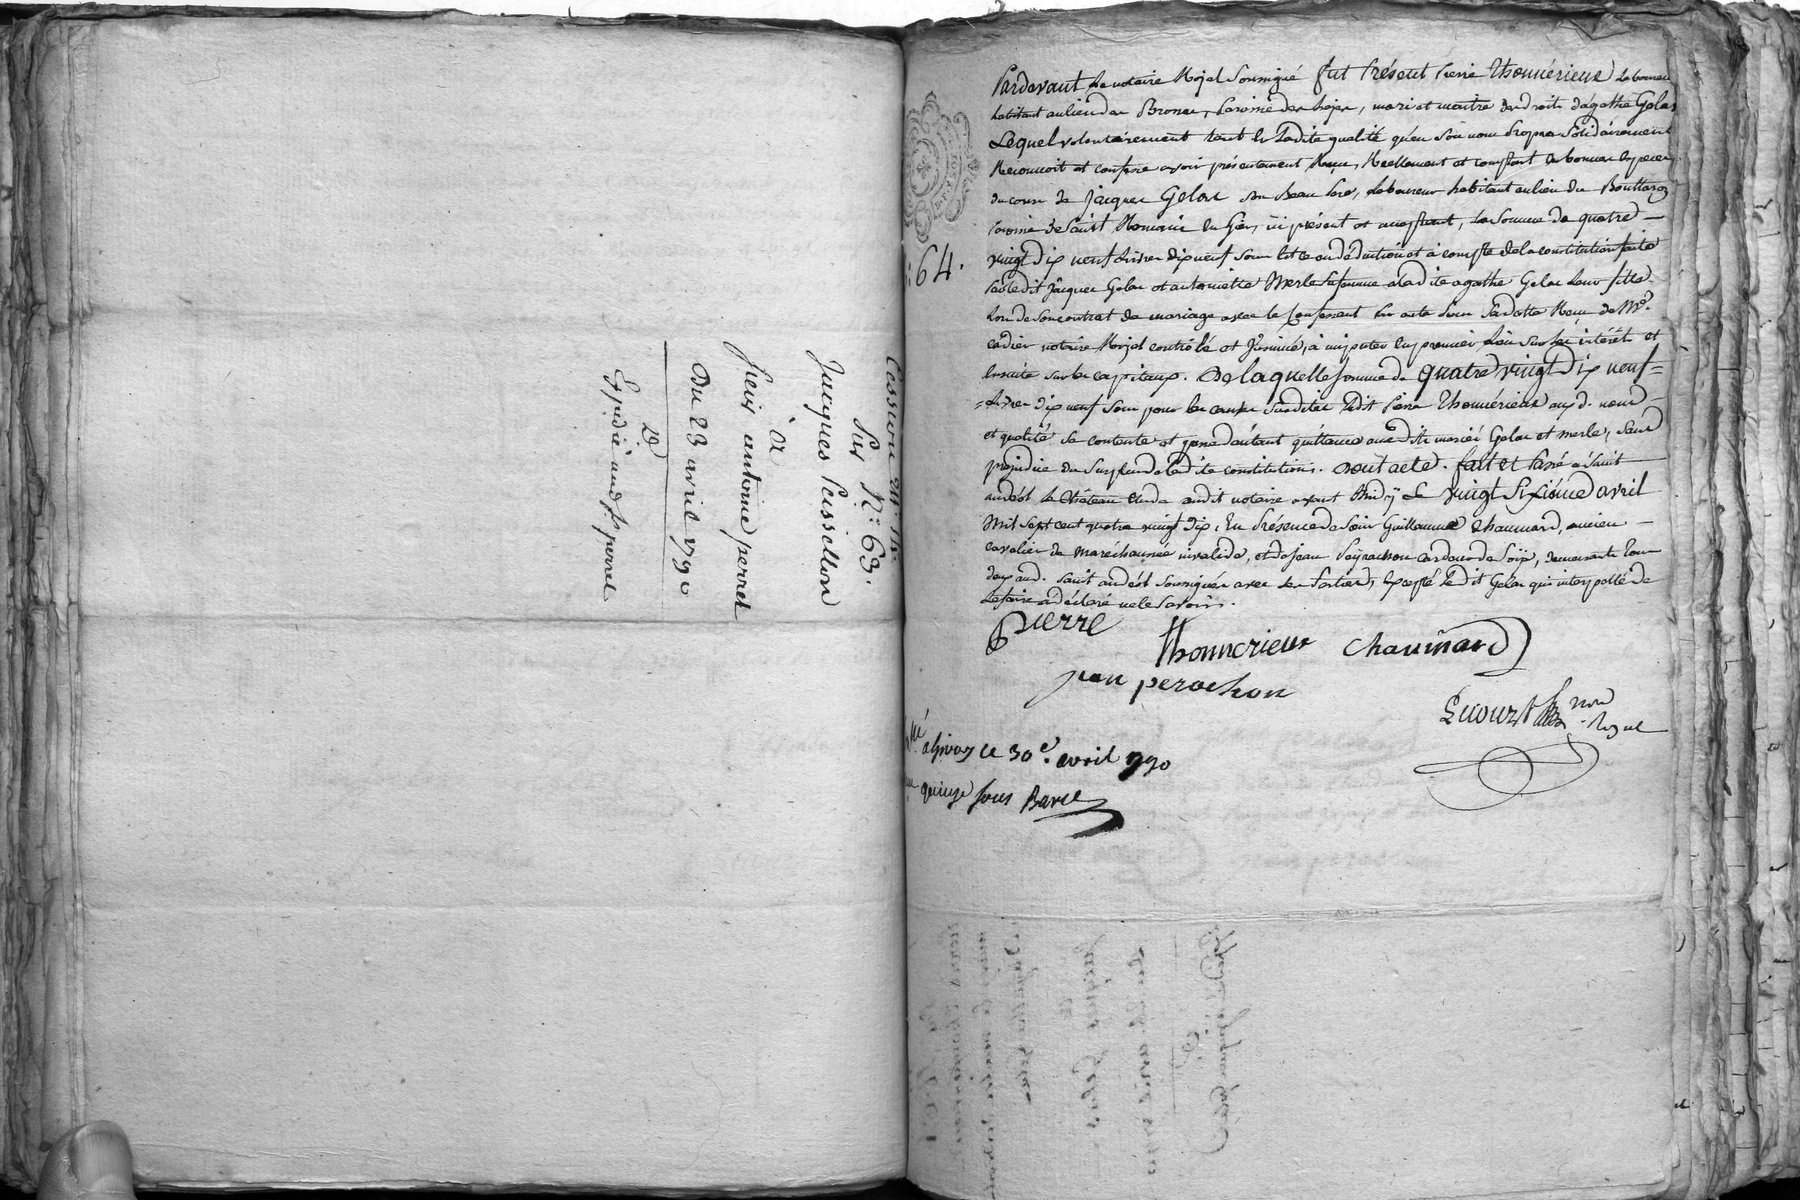 Cession
Sur N.° 63.
Jacques Peissellon
à
Sieur antoine perret
Du 23 avril 1790
Expédié aud. Sr. perret
64.
Pardevant Le notaire Royal Soussigné fut Présent Pierre Thonnérieux Laboureur
habitant au lieu de Paroisse des hayes, mari et maitre des droits d'agathe Gelas
Lequel volontairement tant en Ladite qualité qu'en Son nom Propre Solidairement
Reconnoit et confesse avoir présentement Reçu, Reellement et comptant en bonnes especes
du cours de Jacques Gelas Son Beau Pere, Laboureur habitant au lieu du
Paroisse de Saint Romain en Gier, ici présent et acceptant, La Somme de quatre
vingt dix neuf Livres dix neuf Sous et ce en déduction et à compte de la constitution faite
Par ledit Jacques Gelas et antoinette Merle Sa femme à Ladite agathe Gelas Leur fille
Lors de Son contrat de mariage avec le Confessant Sur acte Reçu de Me.
notaire Royal contrôlé et insinué, à imputer en premier Lieu Sur les intérêts et
Ensuite Sur les capitaux. De laquelle Somme de quatre vingt dix neuf
Livres dix neuf Sous pour les causes Susdites Ledit Pierre Thonnérieux auxd. noms
et qualité Se contente et passe d'autant quittance auxdits mariés Gelas et Merle, Sans
préjudice du Surplus de Ladite constitution. Dont acte. fait et Passé à Saint
andéol le Château Etude dudit notaire avant Midÿ Le vingt Sixième avril
Mil Sept cent quatre vingt dix, En Présence de Sieur Guillaume Chaumard, ancien
cavalier de maréchaussée invalide, et de Jean Peyrachon cardeur de Soÿe, demeurants tous
deux aud. Saint andéol Soussignés avec les Parties, Excepté ledit Gelas qui interpellé de
Le faire a déclaré ne le Savoir.
Pierre
thonnerieux chaumard
jean perachon
nore
Royal
à Givors ce 30e. avril 1790
quinze sous